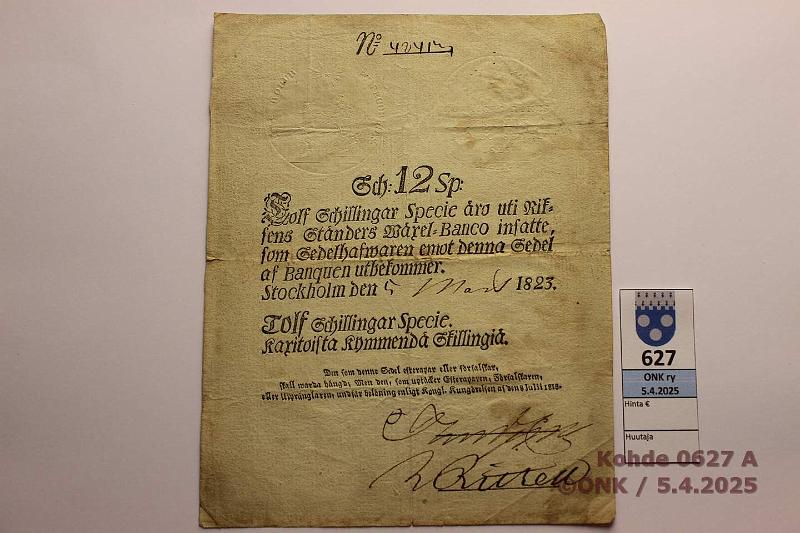 No 42412
Sch: 12 Sp:
Tolf Schillingar Specie äro uti Rik-
sens Ständers Wäxel-Banco insatte,
som Sedelhafwaren emot denna Sedel
af Banquen utbekommer.
Stockholm den 5 Mars 1823.
Tolf Schillingar Specie.
Kaxitoista Kymmendä Skillingiä.
Den som denne Sedel efterapar eller förfalskar,
skall warda hängd; Men den, som uptäcker Efterapare, Förfalskaren,
eller Utprånglaren, undfår belöning enligt Kongl. Kungörelsen af den 8 Julii 1818.
627
ONK ry
5.4.2025
Hinta €
Huutaja
Kohde 0627 A
©ONK / 5.4.2025